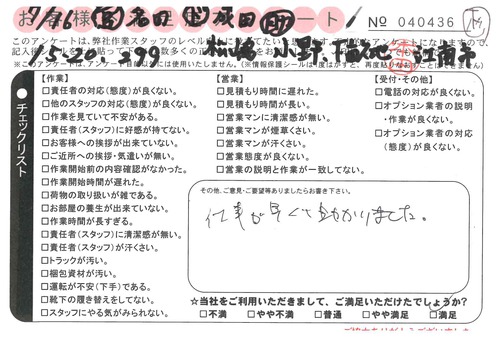 お客様
ート
No 040436
7/26
このアンケートは、弊社作業スタッフのレベル
15-20, 299
※このアンケートは、アンケート以外には使用いたしません。(※情報保護シールは一度はがすと、再度貼り
チェックリスト
【作業】
□責任者の対応(態度)が良くない。
□他のスタッフの対応(態度)が良くない。
□作業を見ていて不安がある。
□責任者(スタッフ)に好感が持てない。
□お客様への挨拶が出来ていない。
□ご近所への挨拶・気遣いが無い。
□作業開始前の内容確認がなかった。
□作業開始時間が遅れた。
□荷物の取り扱いが雑である。
□お部屋の養生が出来ていない。
□作業時間が長すぎる。
□責任者(スタッフ)に清潔感が無い。
□責任者(スタッフ)が汗くさい。
□トラックが汚い。
□梱包資材が汚い。
□運転が不安(下手)である。
□靴下の履き替えをしてない。
□スタッフにやる気がみられない。
【営業】
□見積もり時間に遅れた。
□見積もり時間が長い。
□営業マンに清潔感が無い。
□営業マンが煙草くさい。
□営業マンが汗くさい。
□営業態度が良くない。
□営業の説明と作業が一致してない。
【受付・その他】
□電話の対応が良くない。
□オプション業者の説明
・作業が良くない。
□オプション業者の対応
(態度)が良くない。
その他、ご意見・ご要望等ありましたらお書き下さい。
仕事が早くて助かりました。
☆当社をご利用いただきまして、ご満足いただけたでしょうか?
□不満 □やや不満 □普通 □やや満足 □満足